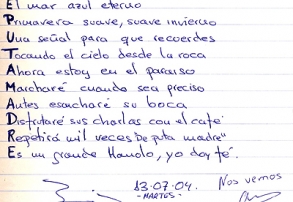 El mar azul eterno
Primavera suave, suave invierno
Una señal para que recuerdes
Tocando el cielo desde la roca
Ahora estoy en el paraiso
Marcharé cuando sea preciso
Antes escucharé su boca
Disfrutaré sus charlas con el café
Repetiré mil veces De puta madre"
Es un grande Manolo, yo doy fé.
13.07.04. Nos vemos
- MARTES -